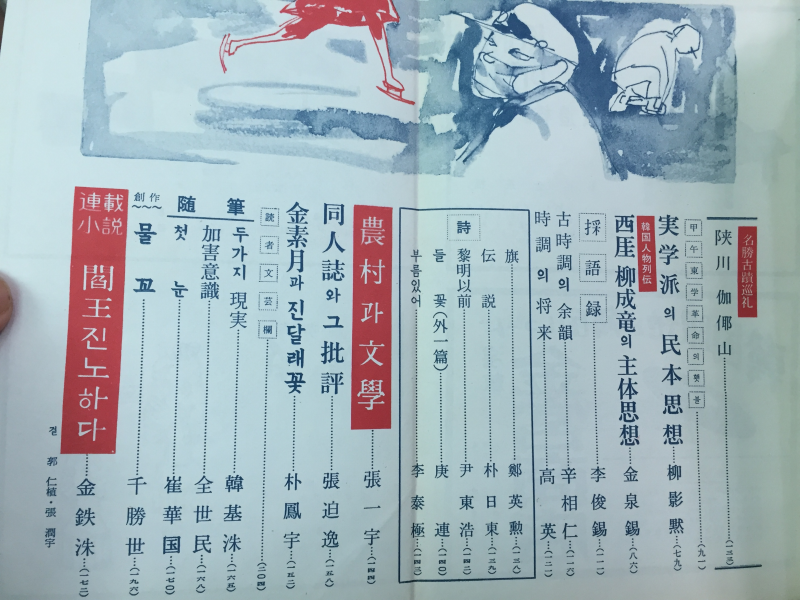 名勝古蹟巡礼
陜川 伽倻山……(一三三)
甲午東学革命의 횃불……(九一)
実学派의 民本思想……柳影黙…(七九)
韓国人物列伝
西厓 柳成竜의 主体思想……金泉錫…(八六)
採語録……李俊錫…(一一一)
古時調의 余韻……辛相仁…(一一六)
時調의 将来……高英…(一二一)
詩
旗……鄭英勲…(一三八)
伝説……朴日東…(一三九)
黎明以前……尹東浩…(一四二)
들꽃(外一篇)……庚連…(一四〇)
부름있어……李泰極…(一四三)
農村과 文學……張一宇…(一四四)
同人誌와 그 批評……張迫逸…(一五八)
金素月과 진달래꽃……朴鳳宇…(一五二)
読者文芸欄……(二〇四)
随筆
두가지 現実……韓基洙…(一六五)
加害意識……全世民…(一六八)
첫눈……崔華国…(一七〇)
創作
물꼬……千勝世…(一九六)
連載小説
閻王진노하다……金鉄洙…(一七二)
컽 郭仁植・張潤宇